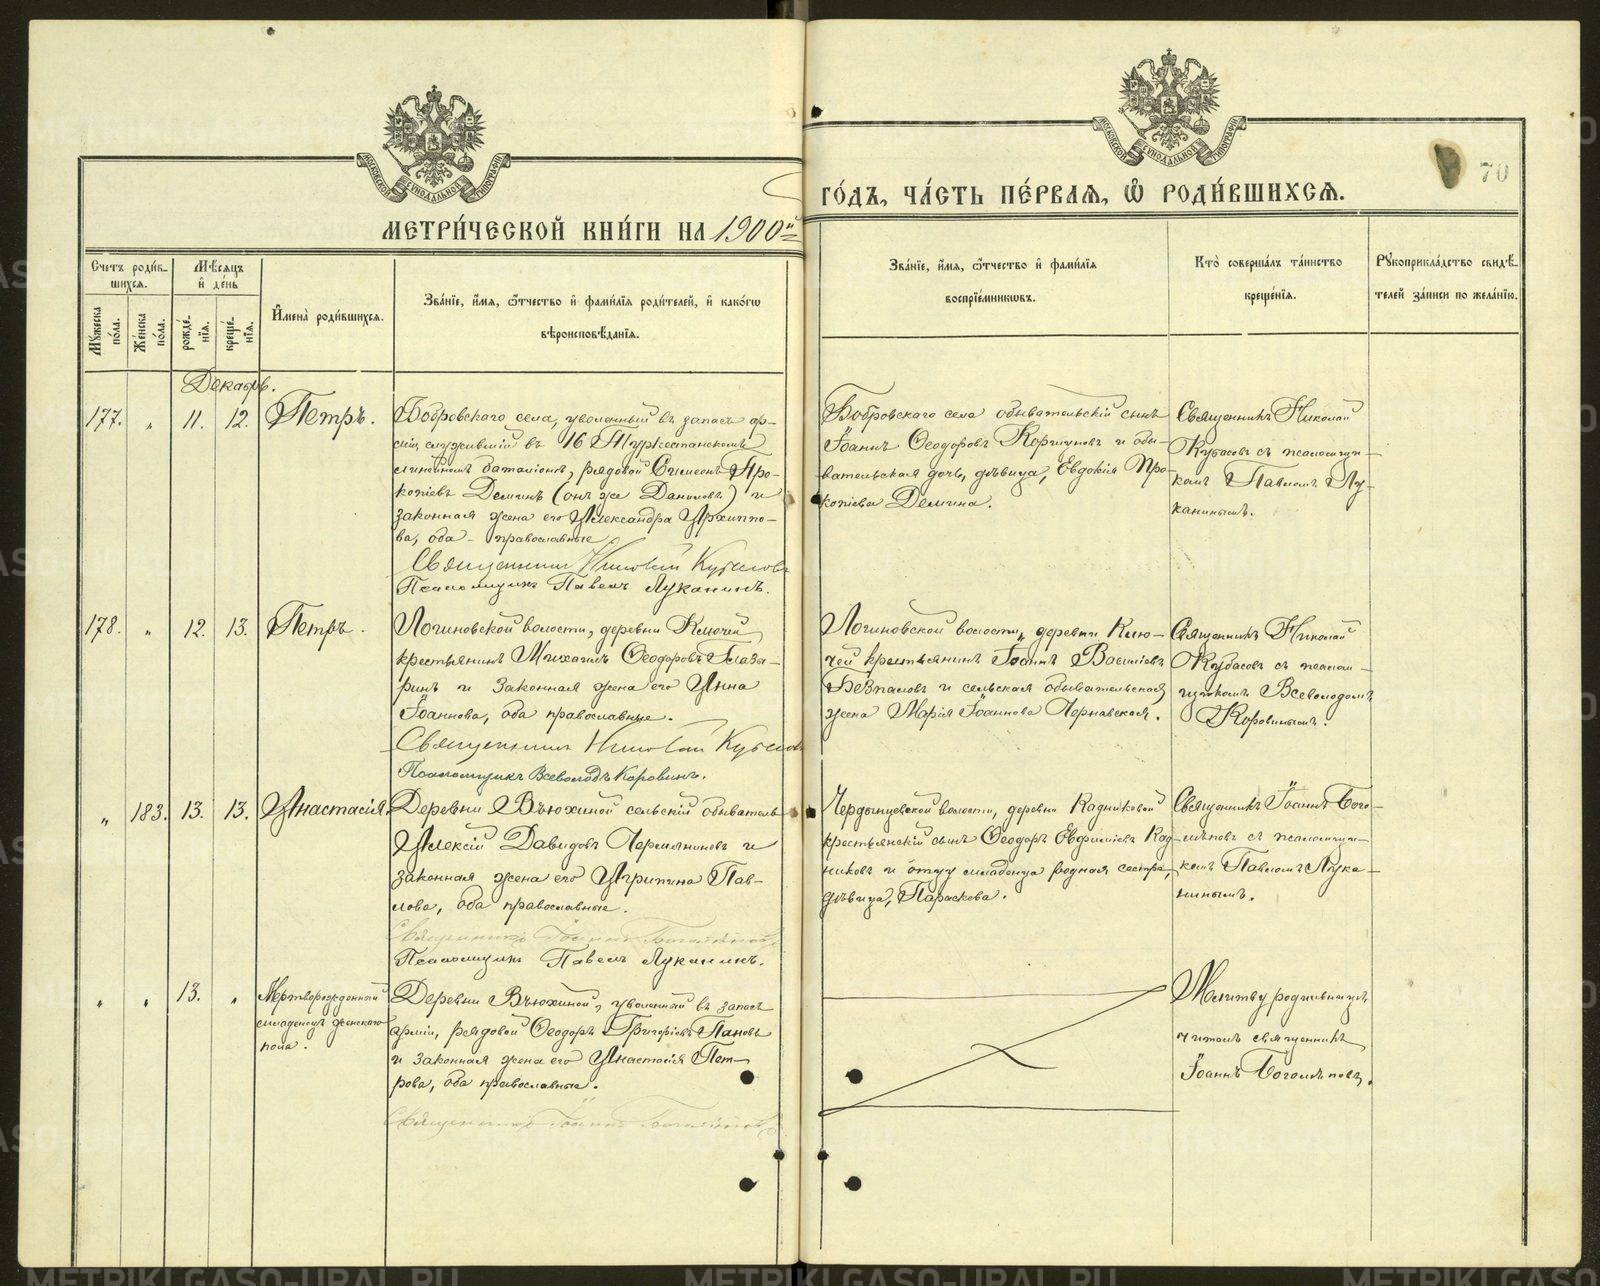 МЕТРИ́ЧЕСКОЙ КНИ́ГИ НА 1900й
ГО́ДЪ, ЧА́СТЬ ПЕ́РВАЯ, Ѿ РОДИ́ВШИХСЯ.
70
Счетъ роди́в-
шихся.
Му́жеска по́ла.
Же́нска по́ла.
Мѣ́сяцъ и҆ де́нь
рожде́-нїя.
креще́-нїя.
И҆мена̀ роди́вшихся.
Зва́нїе, и҆́мя, ѻ҆́тчество и҆ фами́лїя роди́телей, и҆ како́гѡ
вѣроисповѣ́данїя.
Зва́нїе, и҆́мя, ѻ҆́тчество и҆ фами́лїя
воспрїе́мникѡвъ.
Кто̀ соверша́лъ та́инство
креще́нїя.
Рꙋкоприкла́дство свидѣ́-
телей за́писи по жела́нїю.
Декабрь.
177. " 11. 12. Петръ.
Бобровскаго села, уволенный въ запасъ ар-
міи, служившій въ 16 Туркестанскомъ
линейномъ баталіонѣ, рядовой Симеонъ Про-
копіевъ Деминъ (онъ же Даниловъ) и
законная жена его Александра Архиппо-
ва, оба православные
Священникъ Николай Кубасовъ
Псаломщикъ Павелъ Луканинъ.
Бобровскаго села обывательскій сынъ
Іоаннъ Ѳеодоровъ Коршуновъ и обы-
вательская дочь, дѣвица, Евдокія Про-
копіева Демина.
Священникъ Николай
Кубасовъ съ псаломщи-
комъ Павломъ Лу-
канинымъ.
178. " 12. 13. Петръ.
Логиновской волости, деревни Ключей
крестьянинъ Михаилъ Ѳеодоровъ Глазы-
ринъ и законная жена его Анна
Іоаннова, оба православные.
Священникъ Николай Кубасовъ
Псаломщикъ Всеволодъ Коровинъ.
Логиновской волости, деревни Клю-
чей крестьянинъ Іоаннъ Василіевъ
Безпаловъ и сельская обывательская
жена Марія Іоаннова Чернавская.
Священникъ Николай
Кубасовъ съ псалом-
щикомъ Всеволодомъ
Коровинымъ.
" 183. 13. 13. Анастасія.
Деревни Вьюхиной сельскій обыватель
Алексій Давидовъ Пермяниновъ и
законная жена его Агрипина Пав-
лова, оба православные.
Священникъ Іоаннъ Боголѣповъ
Псаломщикъ Павелъ Луканинъ.
Чердынцевской волости, деревни Кадниковой
крестьянскій сынъ Ѳеодоръ Евфиміевъ Кад-
никовъ и отцу младенца родная сестра,
дѣвица, Параскева.
Священникъ Іоаннъ Бого-
лѣповъ съ псаломщи-
комъ Павломъ Лука-
нинымъ.
" " 13. " Мертворожденный
младенецъ женскаго
пола.
Деревни Вьюхиной, уволенный въ запасъ
арміи, рядовой Ѳеодоръ Григоріевъ Пановъ
и законная жена его Анастасія Пет-
рова, оба православные.
Священникъ Іоаннъ Боголѣповъ
Молитву родившицѣ
читалъ священникъ
Іоаннъ Боголѣповъ.
METRIKI.GASO-URAL.RU